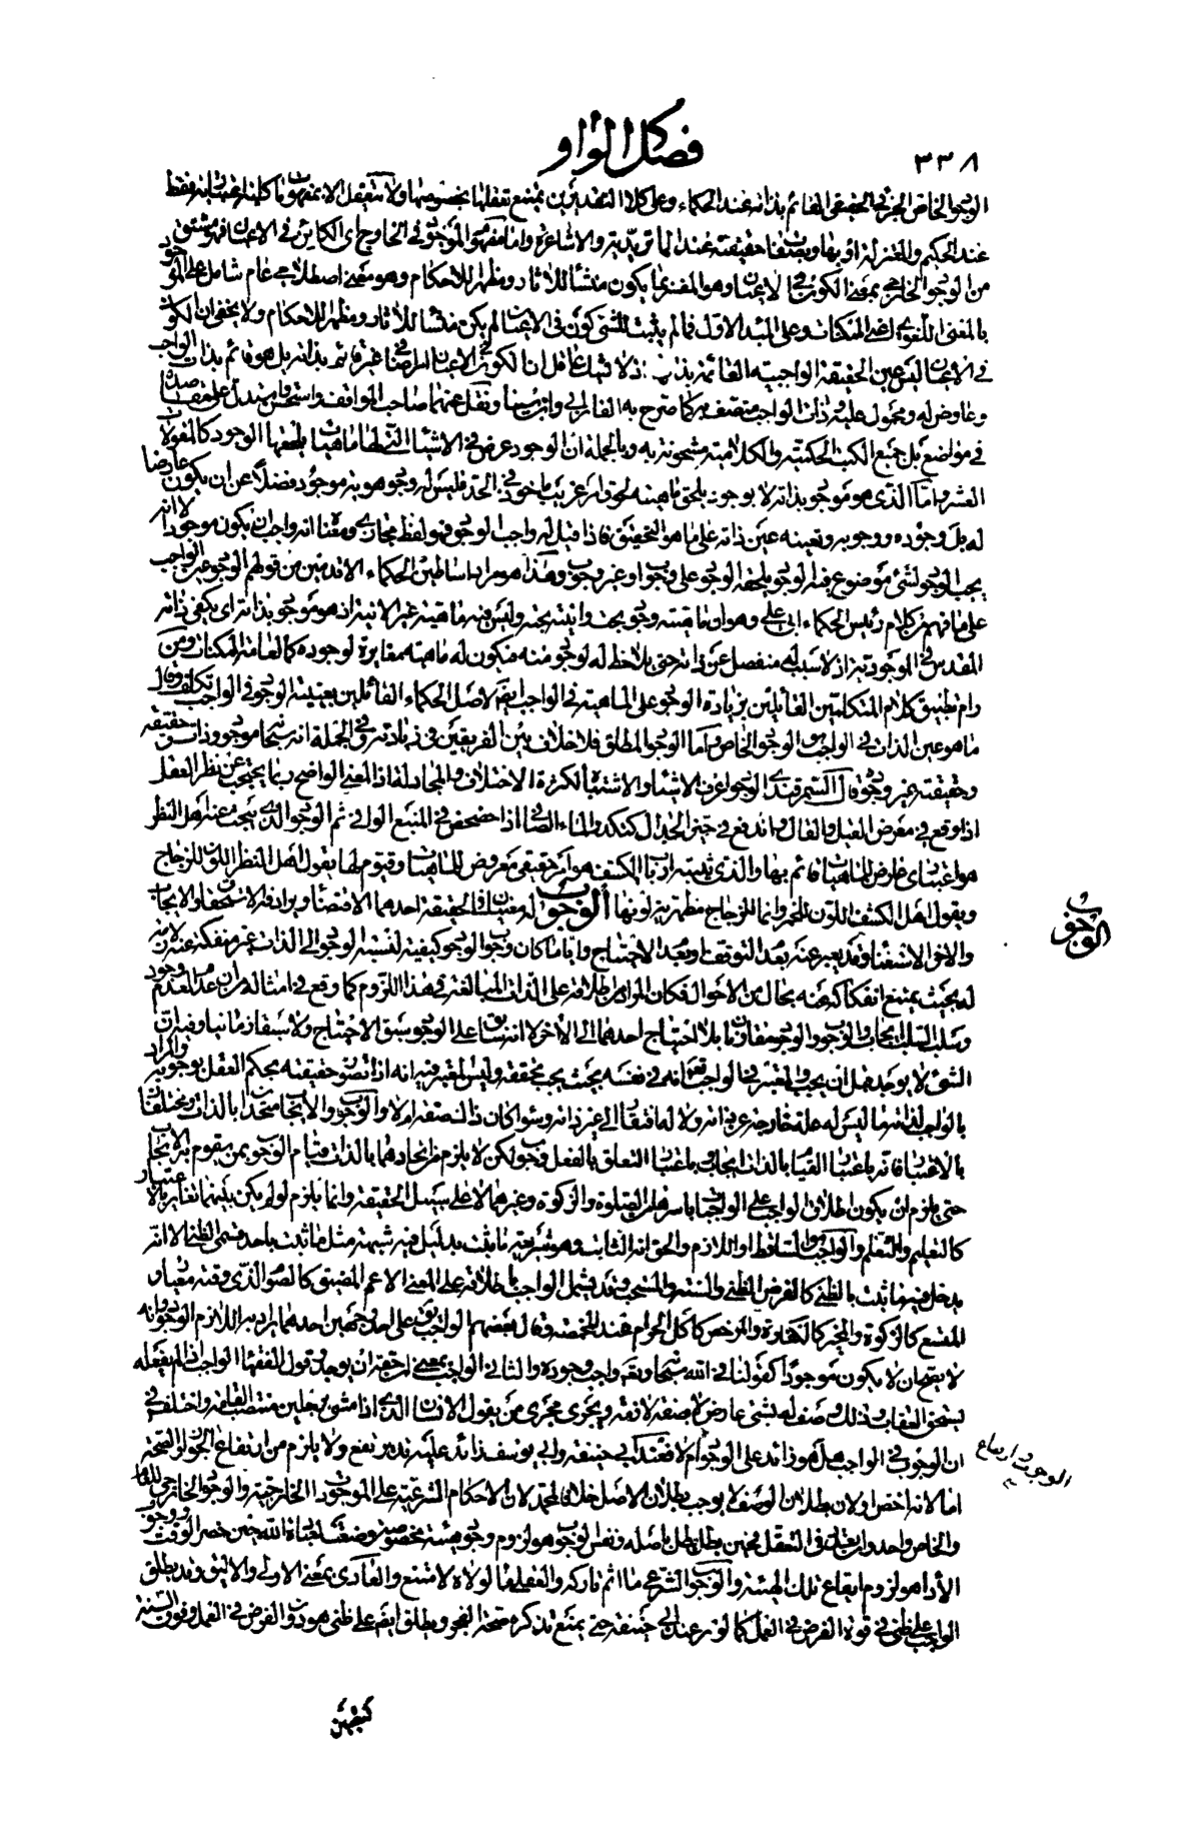 ٣٣٨
فصل الواو
الوجود الخاص الجزئي الحقيقي القائم بذاته عند الحكماء وعلى كلا التقديرين يمتنع تعقلها بخصوصها ولا تتعقل الا بمفهومات كلية اعتبارية فقط
عند الحكيم والمعتزلة او بها وبصفات حقيقية عند الماتريدية والاشاعرة واما مفهوم الموجود في الخارج اي الكائن في الاعيان فهو مشتق
من الوجود الخارجي بمعنى الكون في الاعيان وهو المفسر بما يكون منشأ للآثار ومظهرا للاحكام وهو معنى اصطلاحي عام شامل على الموجود
بالمعنى اللغوي اعني الممكنات وعلى المبدء الاول فما لم يثبت للشئ كون في الاعيان لم يكن منشأ للآثار ومظهرا للاحكام ولا يخفى ان الكون
في الاعيان ليس عين الحقيقة الواجبية القائمة بذاته اذ لا شك عاقل ان الكون في الاعيان امر اضافي غير قائم بذاته بل هو قائم بذات الواجب
وعارض له ومحمول عليه وذات الواجب متصف به كما صرح به الفارابي وابن سينا ونقل عنهما صاحب المواقف واستحسن مستدل على مقصده
في مواضع بل جميع الكتب الحكمية والكلامية مشحونة به وبالجملة ان الوجود عرض في الاشياء التي لها ماهيات يلحقها الوجود كالمقولات
العشر واما الذي هو موجود بذاته لا بوجود يلحق ماهيته لحوق امر غريب ماخوذ في الحد فليس له وجود هو به موجود فضلا عن ان يكون عارضا
له بل وجوده ووجوبه وتعينه عين ذاته على ما هو التحقيق فاذا قيل له واجب الوجود فهو لفظ مجازي ومعناه انه واجب ان يكون موجودا لا انه
يجب الوجود لشئ موضوع فيه الوجود يلحقه الوجود على وجوب او غير وجوب وهذا هو مراد اساطين الحكماء الاقدمين من قولهم الوجود عين الواجب
على ما فهم من كلام رئيس الحكماء ابي علي وهو ان ماهيته وجود بحت وانيته بحتة وليس فيه ماهية غير الانية اذ هو موجود بذاته اي يكفي ذاته
المقدس في الموجودية اذ لا سبب له منفصل عن ذاته حتى يلاحظ له وجود منه فيكون له ماهية مغايرة لوجوده كما لعامة الممكنات ومن
رام تطبيق كلام المتكلمين القائلين بزيادة الوجود على الماهية في الواجب ايضا لاصل الحكماء القائلين بعينية الوجود في الواجب تكلف وقال
ما هو عين الذات في الواجب هو الوجود الخاص واما الوجود المطلق فلا خلاف بين الفريقين في زيادته في الجملة انه سبحانه موجود وذات حقيقة
وحقيقته غير وجود قال السمرقندي الوجود اعرف الاشياء والاشتباه لكثرة الاختلاف والمجادلة اذ المعنى الواضح ربما يحتجب عن نظر العقل
اذا وقع في معرض القيل والقال واندفع في حيز الجدال كتكدر الماء الصافي اذا خضخض في المنبع الوافي ثم الوجود الذي يبحث عنه اهل النظر
هو اعتباري عارض للماهيات قائم بها والذي يثبته ارباب الكشف هو امر حقيقي معروض للماهيات وقيوم لها يقول اهل النظر اللون للزجاج
ويقول اهل الكشف اللون للخمر وانما للزجاج مظهرية لونها الوجوب له معنيان في الحقيقة احدهما الاقتضاء ويرادفه الاستحقاق والايجاب
والآخر الاستغناء وقد يعبر عنه بعدم التوقف وبعدم الاحتياج وايا ما كان وجوب الوجود كيفية لنسبة الوجود الى الذات غير منفكة عنه لازمة
له بحيث يمتنع انفكاكه عنه بحال من الاحوال فكان المراد من اطلاقه على الذات المبالغة في هذا اللزوم كما وقع في امثاله من ان عدم العدم وجود
وسلب السلب ايجاب والوجوب والوجود مقاونان بلا احتياج احدهما الى الآخر لا انه سابق على الوجود سبق الاحتياج ولا سبقا زمانيا وفيه ان
الشئ لا يوجد قبل ان يجب والمعتبر في الواجب هو انه في نفسه بحيث يجب تحققه وليس المعتبر فيه انه اذا تصور حقيقته يحكم العقل بوجوبه والمراد
بالواجب لذاته ما ليس له علة خارجة عن ذاته ولا له افتقار الى غير ذاته وسواء كان ذلك صفة ام لا والوجوب والايجاب متحدان بالذات ومختلفان
بالاعتبار فانه باعتبار القيام بالذات ايجاب وباعتبار التعلق بالفعل وجوب لكن لا يلزم من اتحادهما بالذات قيام الوجوب بمن يقوم به الايجاب
حتى يلزم ان يكون اطلاق الواجب على الواجبات باسرها من الصلوة والزكوة وغيرهما لا على سبيل الحقيقة وانما يلزم لو لم يكن بينهما تغاير بالاعتبار
كالتعليم والتعلم والواجب هو الساقط او اللازم والحق انه الثابت وهو شريعة ما ثبت بدليل فيه شبهة مثل ما ثبت باحد قسمي الظني الا انه
يدخل فيه ما ثبت بالظني كالفرض الظني والسنة والمستحب وقد يشمل الواجب باطلاقه على المعنى الاعم المضيق كالصوم الذي وقته معيار
للموسع كالزكوة والمخير كالكفارة والمرخص كاكل الحرام عند المخمصة وقال بعضهم الواجب يقال على احد وجهين احدهما يراد به اللازم الوجوب وانه
لا يصح ان لا يكون موجودا كقولنا في الله سبحانه وتعالى واجب وجوده والثاني الواجب بمعنى ان حقه ان يوجد وقول الفقهاء الواجب اذا لم يفعله
يستحق العقاب وذلك وصف له بشئ عارض لا بصفة لازمة ويجري مجرى من يقول الانسان الذي اذا مشى برجلين منتصب القامة واختلف في
ان الوجوب في الواجب هل هو زائد على الوجود ام لا فعند ابي حنيفة وابي يوسف زائد عليه فبدليل نفع ولا يلزم من ارتفاع الجواز الصحة
اما لانه اخص اولان بطلان الوصف لا يوجب بطلان الاصل خلافا لمحمد لان الاحكام الشرعية على الموجودات الخارجية والوجود الخارجي للعام
والخاص واحد وان تغاير في التعقل فحين بطل بطل باصله ونفس الوجوب هو لزوم وجود هيئة مخصوصة وضعت لعبادة الله حين حضر الوقت ووجوب
الأداء هو لزوم ايقاع تلك الهيئة والوجوب الشرعي ما اثم تاركه والعقلي ما لولاه لامتنع والعادي بمعنى الاولى والاليق وقد يطلق
الواجب على ظني في قوة الفرض في العمل كالوتر عند ابي حنيفة حتى يمتنع تذكره صحة الفجر ويطلق ايضا على ظني هو دون الفرض في العمل وفوق السنة
الوجوب
الوجوب ارتفاع
كتعيين